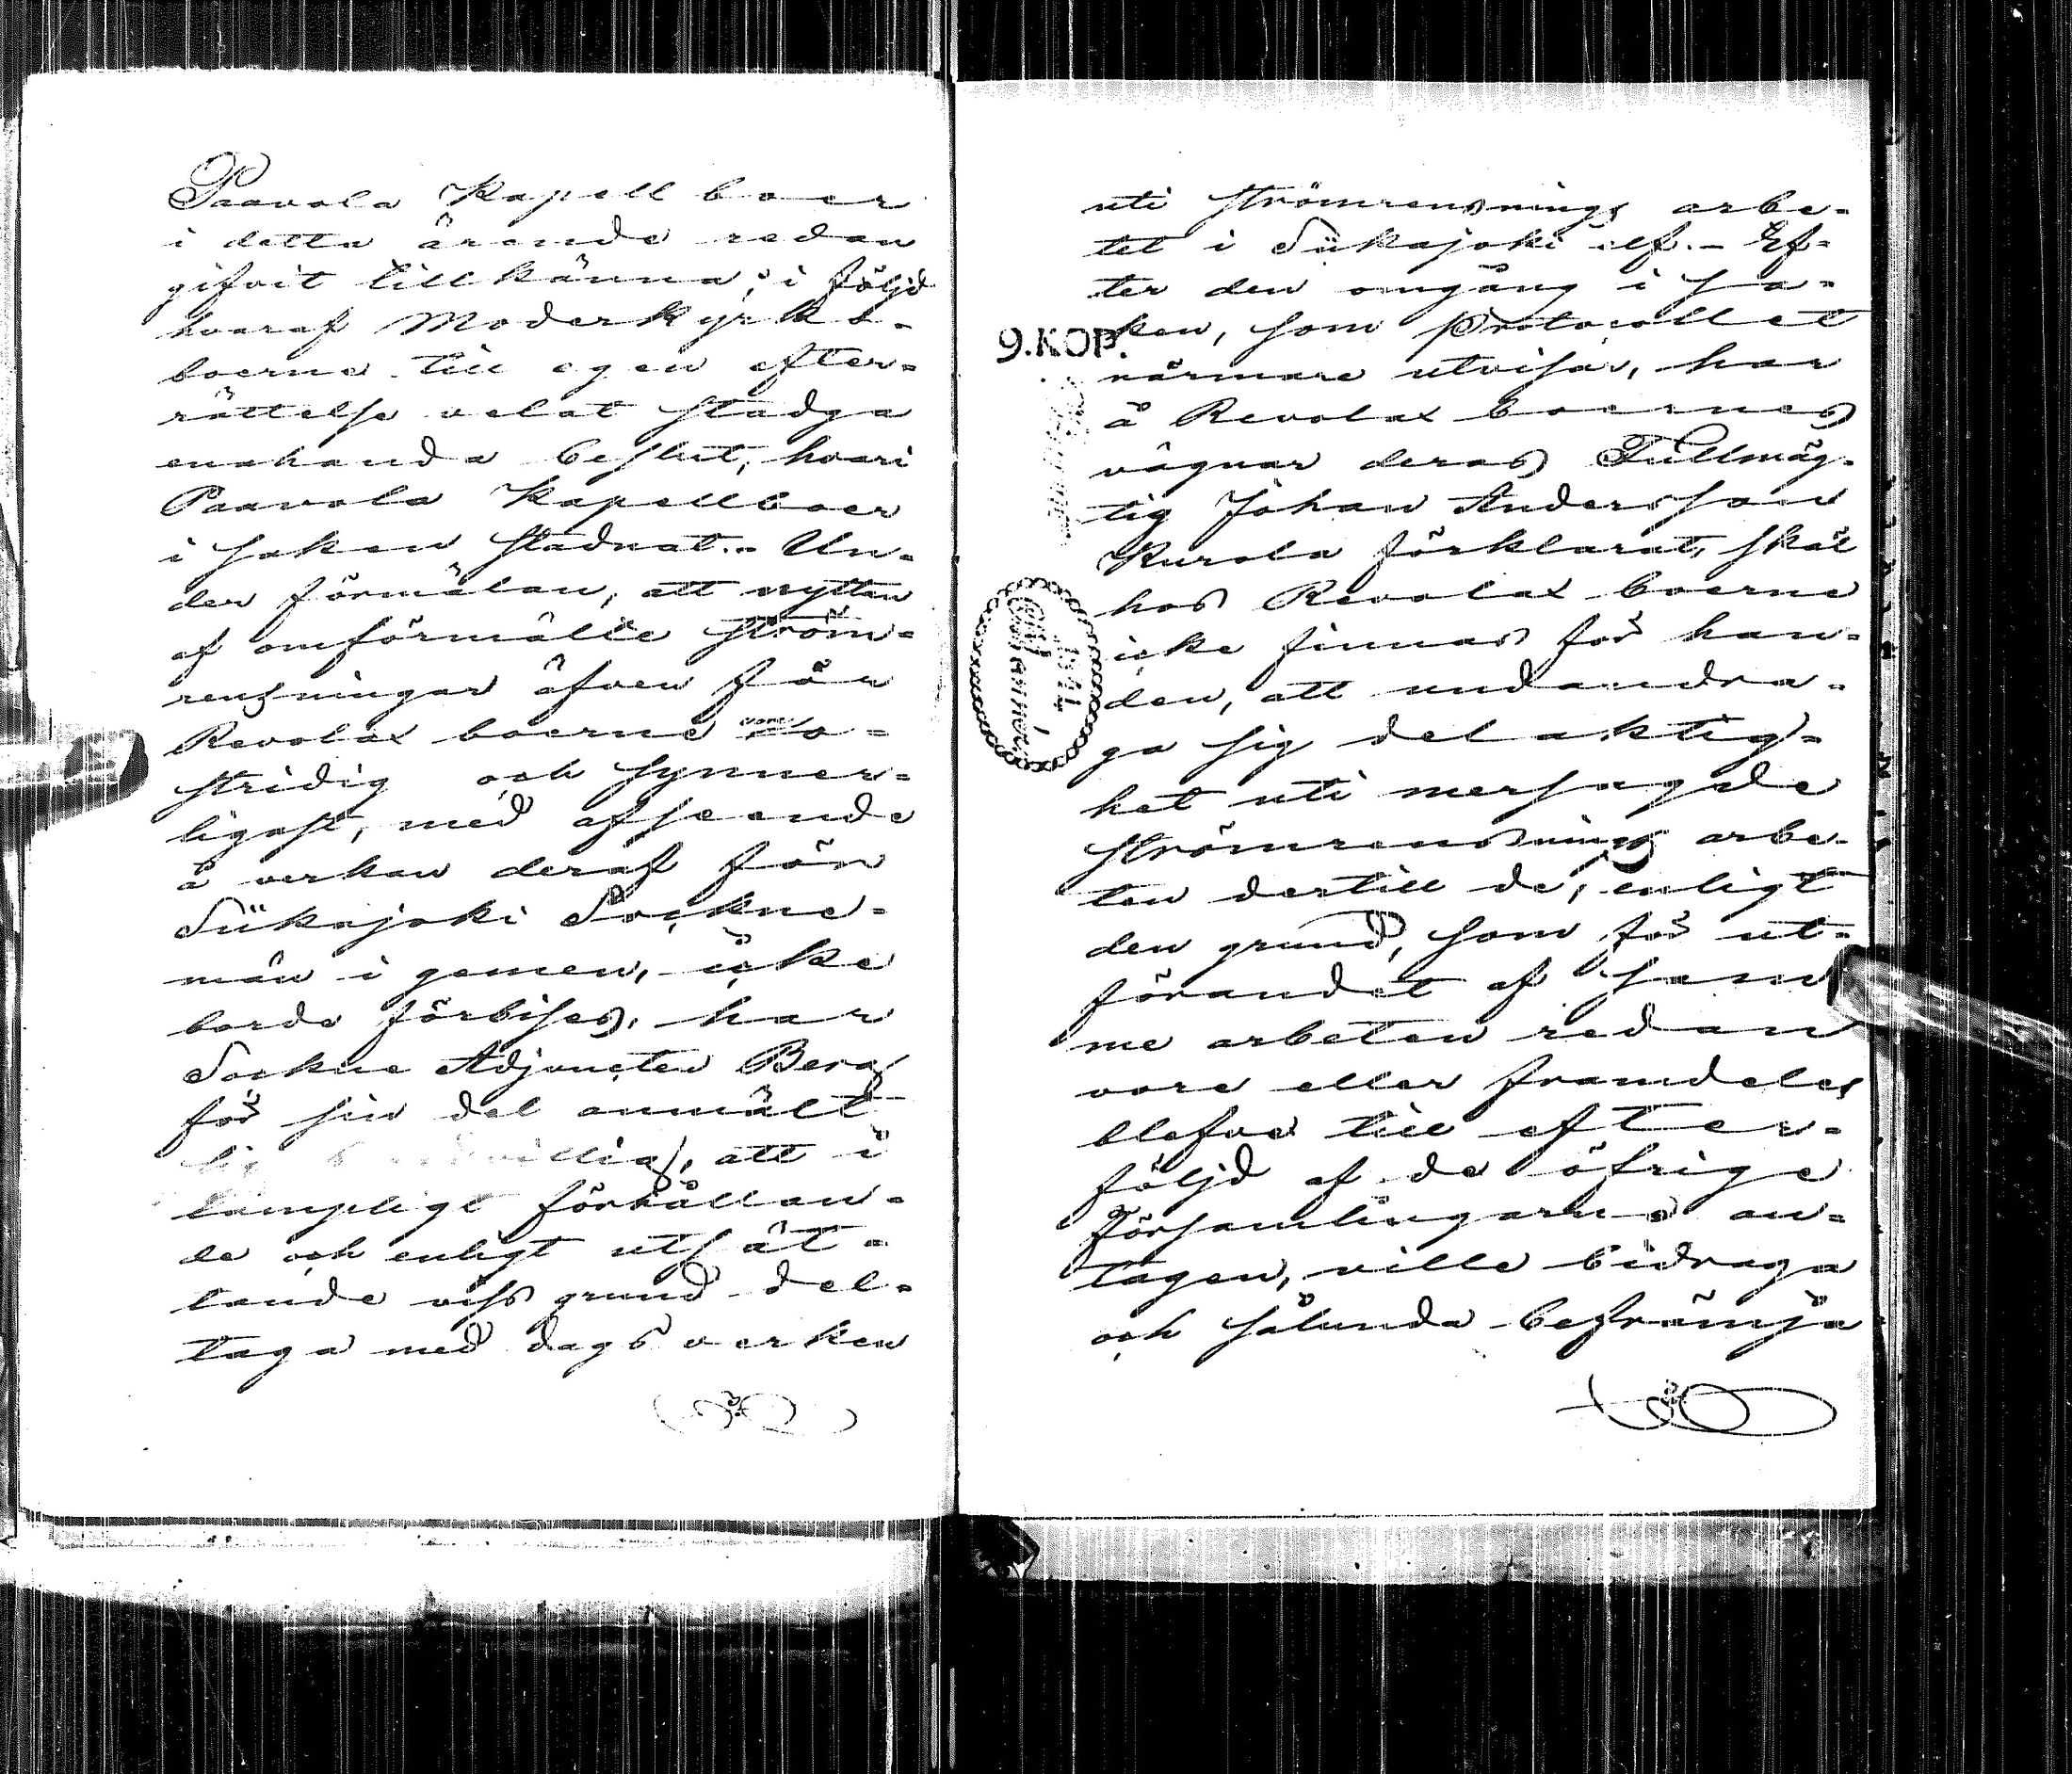 Paavola Kapell boer
i detta ärende redan
gifvit tillkänna; i följd
hvaraf Moderkyrko-
boerne till egen efter-
rättelse velat stadga
enahanda beslut, hvari
Paavola Kapellboer
i saken stadnat. - Un-
der förmälan, att nyttan
af omförmälte ström-
rensningar äfven för
Revolax boerne vore o-
stridig och synner-
ligast, med afseende
å verkan deraf för
Siikajoki Sockne-
män i gemen, icke
borde förbises, har
Sockne Adjuncten Berg
för sin del anmält
sig villig, att i
lämpligt förhållan-
de och enligt utsät-
tande viss grund del-
taga med dagsverken
uti strömrensnings arbe-
tet i Siikajoki elf. - Ef-
ter den omgång i sa-
ken, som Protocollet
närmare utvisar, har
å Revolax boernes
vägnar deras Fullmäg-
tig Johan Andersson
Kurola förklarat, skäl
hos Revolax boerne
icke finnas för han-
den, att undandra-
ga sig delaktig-
het uti mersagde
strömrensnings arbe-
ten dertill de, enligt
den grund, som för ut-
förandet af sam
me arbeten redan
vore eller framdeles
blefve till efter-
följd af de öfrige
Församlingarne an-
tagen, ville bidraga
och sålunda befrämja
9.KOP.
1844